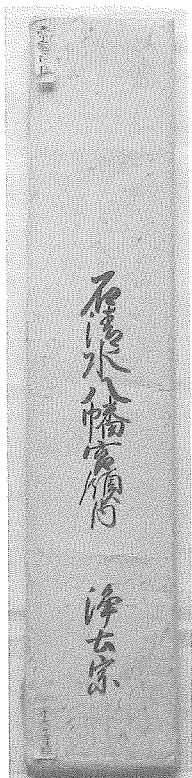 石清水八幡宮領内　浄土宗